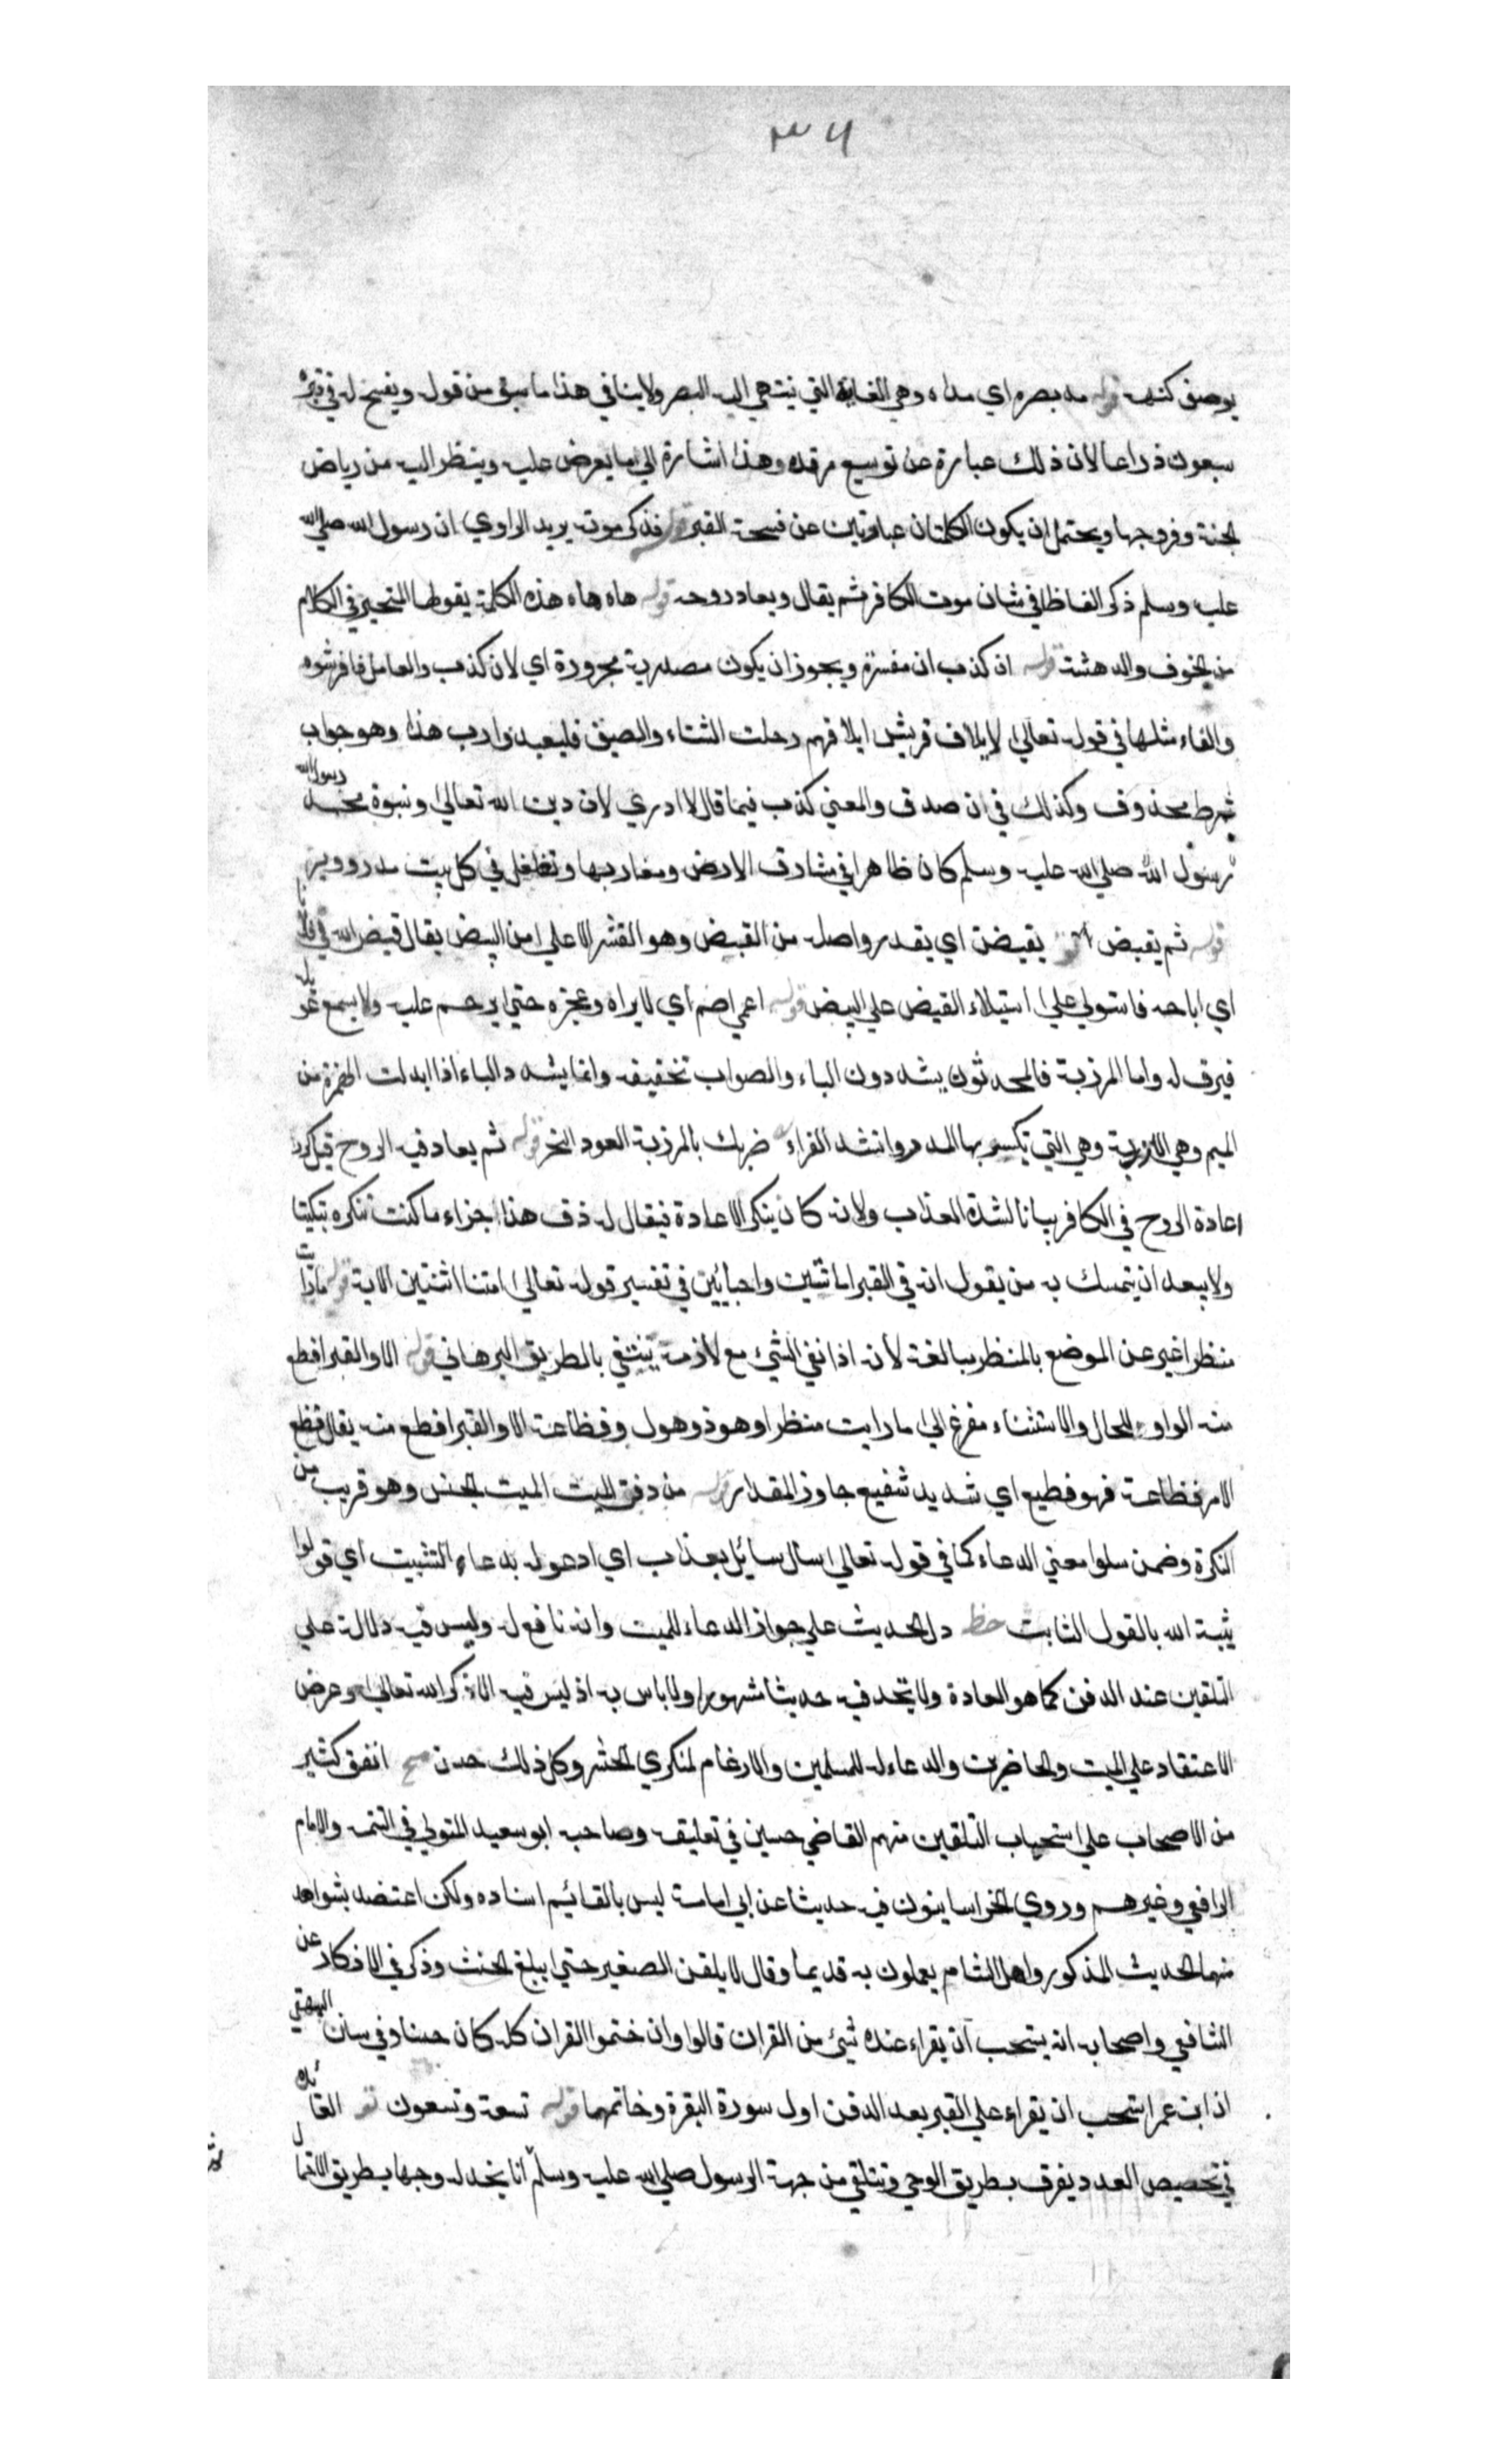 ٣٦
يوصف كنهه قوله مد بصره اي مداه وهي الغاية التي ينتهي اليه البصر ولا ينافي هذا ما سبق من قوله ويفسح له في قبره
سبعون ذراعا لان ذلك عبارة عن توسيع مرقده وهذا اشارة الي ما يعرض عليه وينظر اليه من رياض
الجنة وفروجها ويحتمل ان يكون الكلمتان عبارتين عن فسحة القبر قوله فذكر موته يريد الراوي ان رسول الله صلي الله
عليه وسلم ذكر الفاظا في شان موت الكافر ثم يقال ويعاد روحه قوله هاه هاه هذه الكلمة يقولها المتحير في الكلام
من الخوف والدهشة قوله ان كذب ان مفسرة ويجوز ان يكون مصدرية مجرورة اي لان كذب والعامل فافرشوه
والفاء مثلها في قوله تعالي لايلاف قريش ايلافهم رحلت الشتاء والصيف فليعبدوا رب هذا وهو جواب
شرط محذوف وكذلك في ان صدق والمعني كذب فيما قال لا ادري لان دين الله تعالي ونبوة محمد رسول الله
رسول الله صلي الله عليه وسلم كان ظاهرا في مشارق الارض ومغاربها وتغلغل في كل بيت مدر ووبر
قوله ثم يقيض يقيض اي يقدر واصله من القيض وهو القشر الاعلي من البيض يقال قيض الله
اي اباحه فاستولي علي استيلاء القيض علي البيض قوله اعمي اصم اي لا يراه وعجزه حتي يرحم عليه ولا يسمع عويله
فيرق له واما المرزبة فالمحدثون يشددون الباء والصواب تخفيفه وانما يشدد الباء اذا ابدلت الهمزة من
الميم وهي الارزبة وهي التي يكسر بها المدر وانشد الفراء ضربك بالمرزبة العود النخر قوله ثم يعاد فيه الروح قيل كرر
اعادة الروح في الكافر بيانا لشدة العذاب ولانه كان ينكر الاعادة فيقال له ذق هذا جزاء ما كنت تنكره تبكيتا
ولا يبعد ان يتمسك به من يقول انه في القبر اماتتين واحيائين في تفسير قوله تعالي امتنا اثنتين الاية قوله ما رايت
منظرا غير عن الموضع بالمنظر مبالغة لانه اذا نفي الشيء مع لازمه ينتفي بالطريق البرهاني قوله الا والقبر افظع
منه الواو للحال والاستثناء مفرغ الي ما رايت منظرا وهو ذو هول وفظاعة الا والقبر افظع منه يقال فظع
الامر فظاعة فهو فظيع اي شديد شفيع جاوز المقدار قوله من دفن الميت الميت الجنس وهو قريب من
النكرة وضمن سلوا معني الدعاء كما في قوله تعالي سال سائل بعذاب اي ادعو له بدعاء التثبيت اي قولوا
ثبته الله بالقول الثابت حظ دل الحديث علي جواز الدعاء للميت وانه نافع له وليس فيه دلالة علي
التلقين عند الدفن كما هو العادة ولا تجد فيه حديثا مشهورا ولا باس به اذ ليس فيه الا ذكر الله تعالي وعرض
الاعتقاد علي الميت والحاضرين والدعاء له للمسلمين والارغام لمنكري الحشر وكل ذلك حسن مح اتفق كثير
من الاصحاب علي استحباب التلقين منهم القاضي حسين في تعليقه وصاحبه ابو سعيد المتولي في التتمه والامام
الرافعي وغيرهم وروي الخراسانيون فيه حديثا عن ابي امامة ليس بالقائيم اسناده ولكن اعتضد بشواهد
منها الحديث المذكور واهل الشام يعملون به قديما وقال لا يلقن الصغير حتي يبلغ الحنث وذكر في الاذكار عن
الشافعي واصحابه انه يستحب ان يقراء عنده شيئ من القران قالوا وان ختموا القران كله كان حسنا وفي سنن البيهقي
ان ابن عمر استحب ان يقراء علي القبر بعد الدفن اول سورة البقرة وخاتمها قوله تسعة وتسعون تو الفائدة
في تخصيص العدد يفرق بطريق الوحي ويتلقي من جهة الرسول صلي الله عليه وسلم انا نجد له وجها بطريق الاحتمال